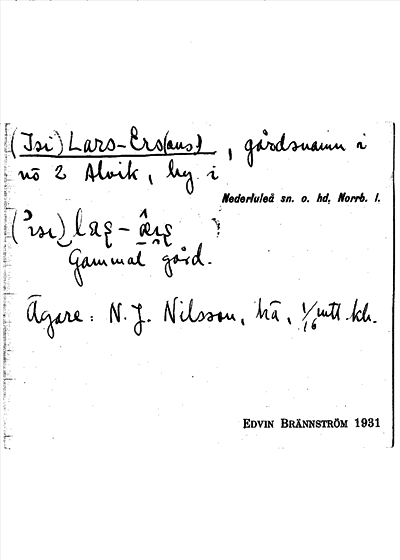 (Isi) Lars-Ers(ans), gårdsnamn i
nō 2 Alvik, by i
Nederluleå sn. o. hd. Norrb. l.
Gammal gård.
Ägare: N. J. Nilsson, hā, 1/16 mtl kh.
EDVIN BRÄNNSTRÖM 1931